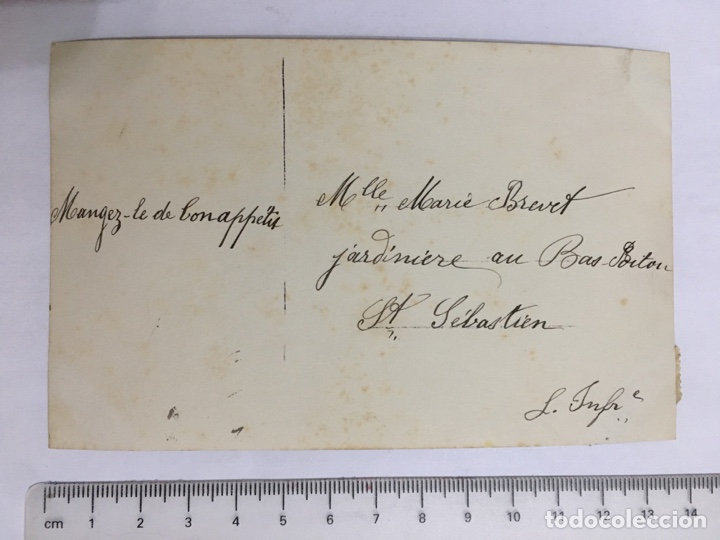 Mangez-le de bon appétit
Mlle Marie Brevet
jardinière au Bas-Bitou
St Sébastien
L. Infre
cm 1 2 3 4 5 6 7 8 9 10 11 12 13 14
todocoleccion
todocoleccion.net